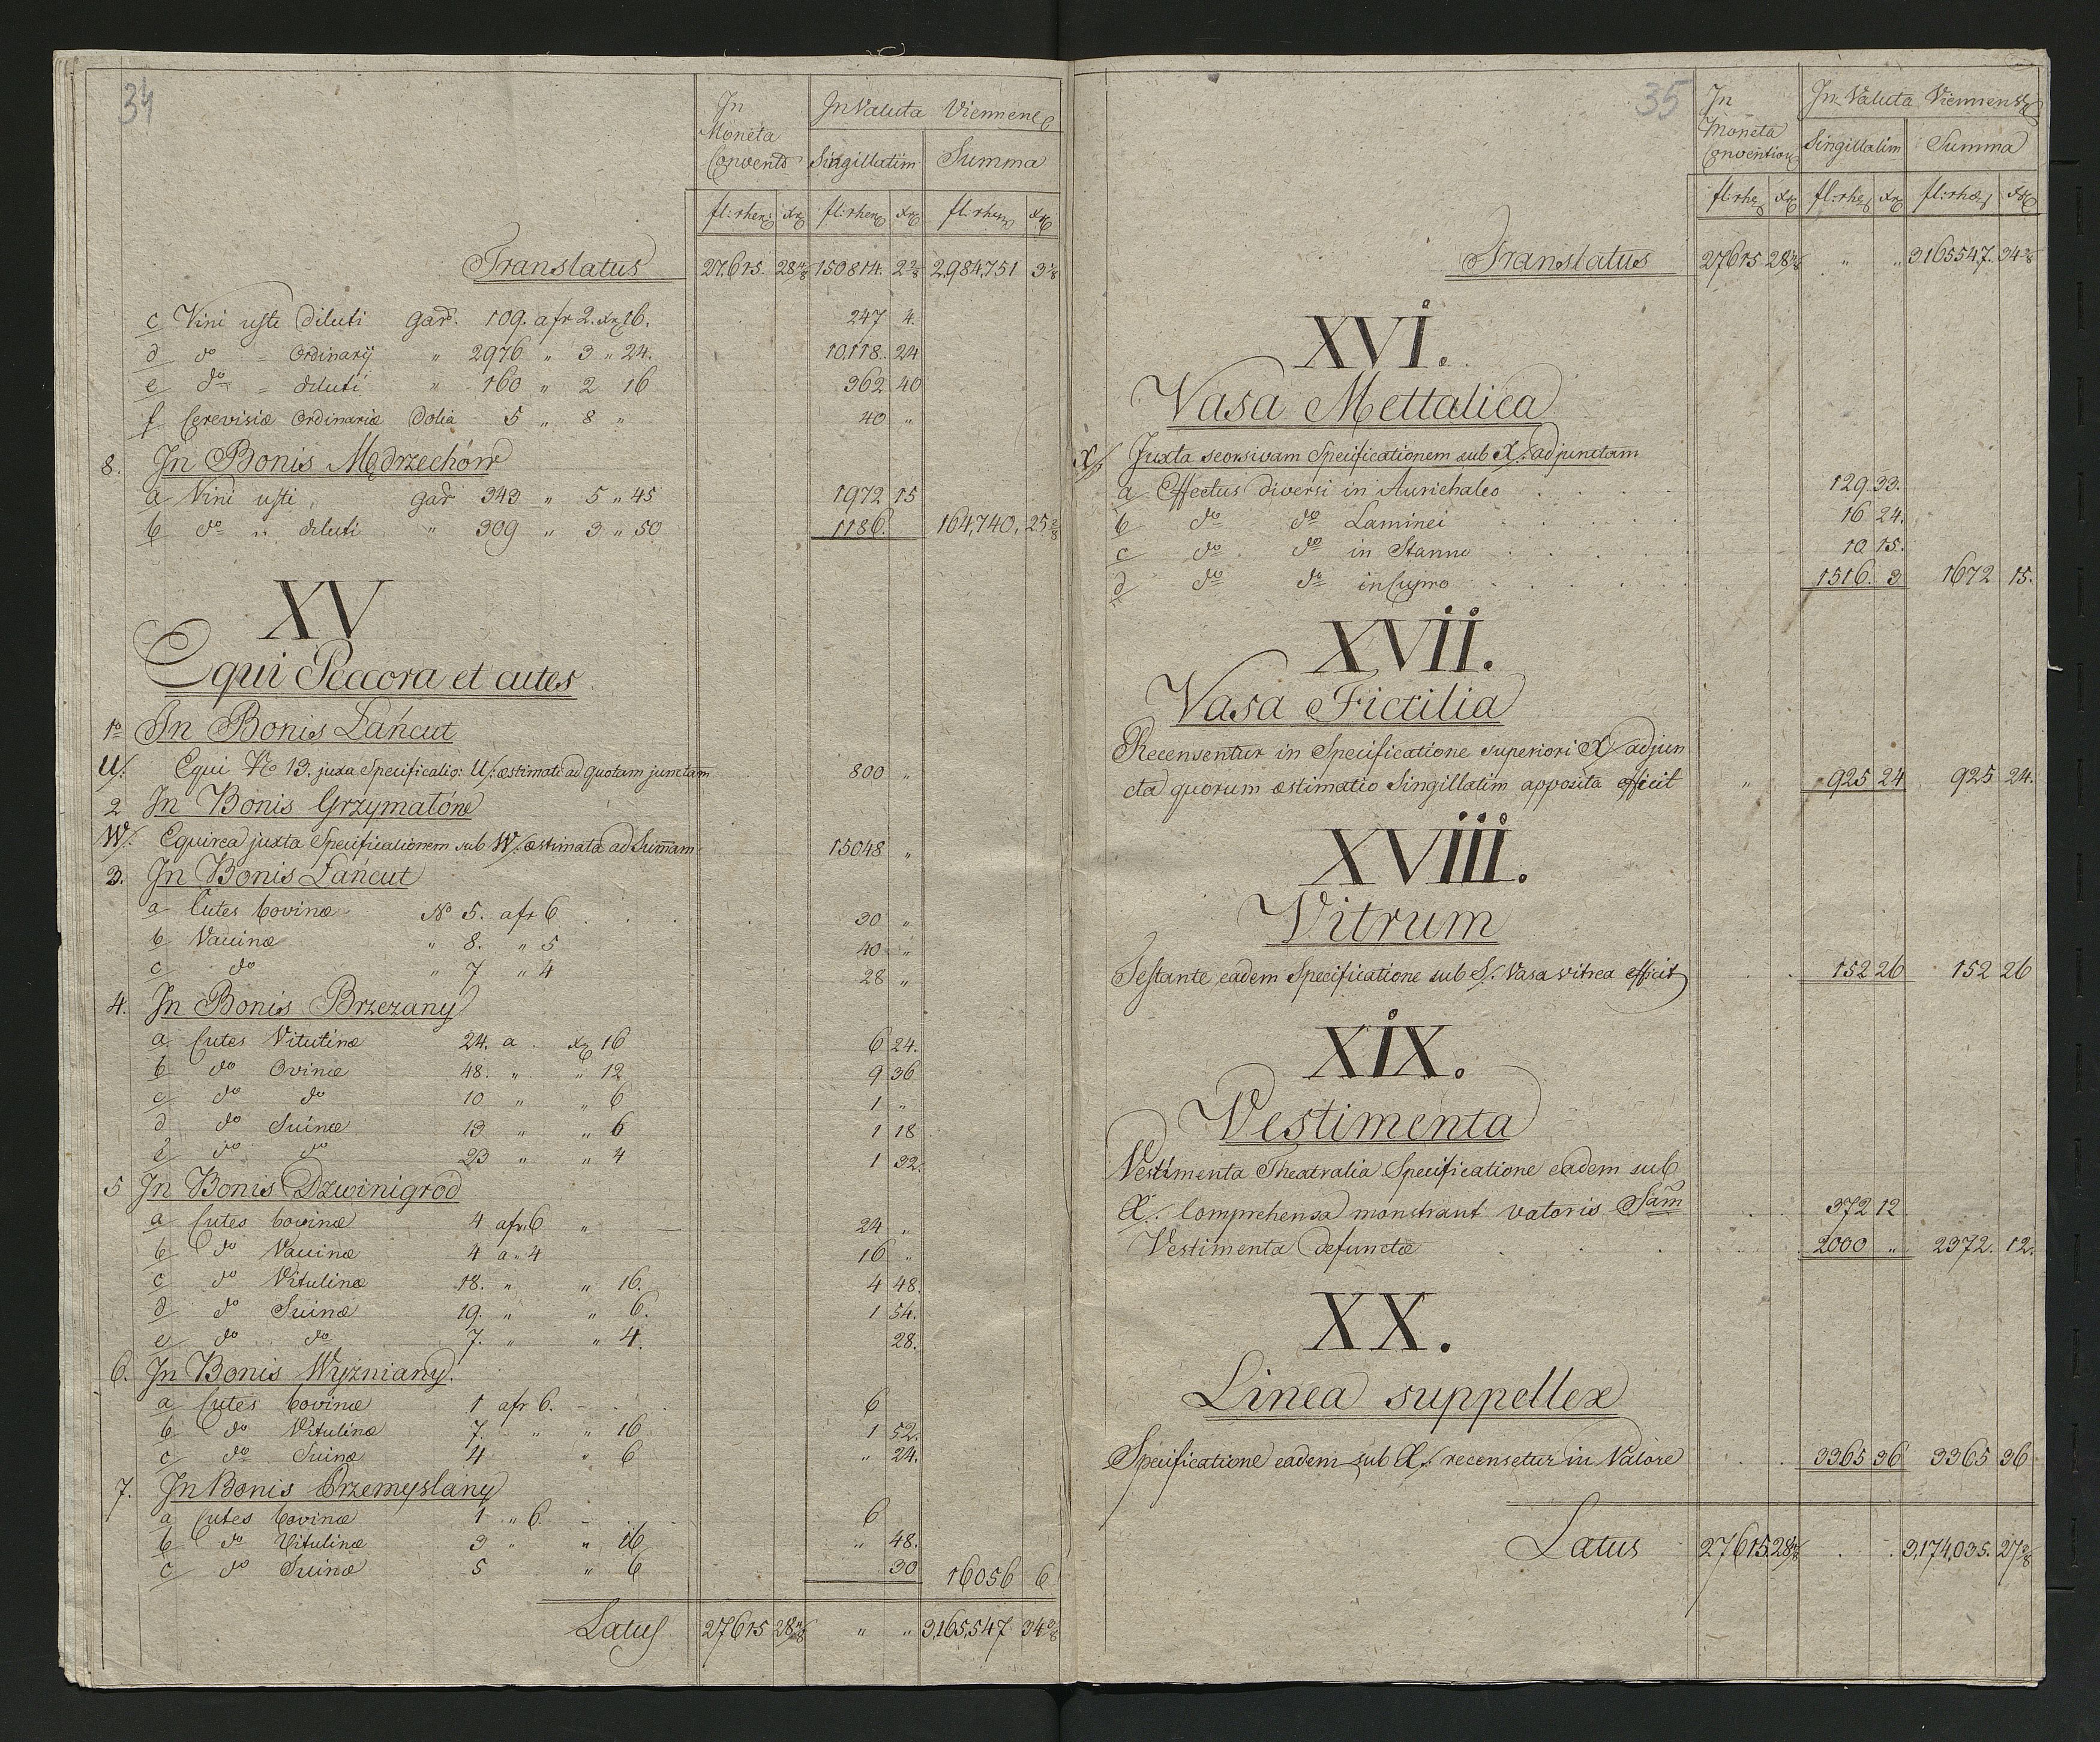 34
In Moneta Convents | In Valuta Viennens
Singillatim | Summa
fl: rhens xr | fl: rhen xr | fl: rhens xr
Translatus 27.615. 28 4/8 150814. 2 2/8 2,984,751 3 1/8
c Vini usti diluti gar. 109. a fr 2. xr 16. 247 4.
d do " Ordinarÿ " 2976 " 3 " 24. 10,118. 24
e do " diluti " 160 " 2 16 362 40
f Cerevisiæ Ordinariæ Dolia 5 " 8 " 40 "
8. In Bonis Mędrzechów
a Vini usti, gar 343 " 5 " 45 1972 15
b do " diluti " 309 " 3 " 50 1186. 164,740. 25 2/8
XV
Equi Peccora et cutes
1o In Bonis Łańcut
U/. Equi No 13. juxa Specificatio: U/. æstimati ad quotam junctam 800 "
2 In Bonis Grzymałów
W/. Equirea juxta Specificationem sub W/. æstimata ad Sum̄am 15048 "
3. In Bonis Łańcut
a Cutes bovinæ No 5. a fr 6 30 "
b Vaccinæ " 8. " 5 40 "
c do " 7 " 4 28 "
4. In Bonis Brzezany
a Cutes Vitulinæ 24. a xr 16 6 24.
b do Ovinæ 48. " " 12 9 36
c do do 10 " " 6 1 "
d do Suinæ 13 " " 6 1 18
e do do 23 " " 4 1 32.
5 In Bonis Dzwinigrod
a Cutes bovinæ 4 a fr. 6 " 24 "
b do Vaccinæ 4 a " 4 16 "
c do Vitulinæ 18. " " 16. 4 48.
d do Suinæ 19. " " 6. 1 54.
e do do 7. " " 4. 28.
6. In Bonis Wyżniany.
a Cutes bovinæ 1 a fr 6. 6
b do Vitulinæ 7. " " 16 1 52.
c do Suinæ 4 " 6 " 24.
7. In Bonis Przemyslany
a Cutes bovinæ 1 " 6. 6
b do Vitulinæ 3 " " 16 " 48.
c do Suinæ 5 " 6 30 16056 6
Latus 27615 28 4/8 " " 3,165,547 34 3/8
35
In Moneta Convention | In Valuta Viennens
Singillatim | Summa
fl: rhe xr | fl: rhe xr | fl: rhe xr
Translatus 27615 28 4/8 " " 3165547. 34 3/8
XVI.
Vasa Mettalica
X/. Juxta seorsivam Specificationem sub X/. adjunctam
a Effectus diversi in Aurichalco 129. 33.
b do do Laminei 16 24.
c do do in Stanno 10 15.
d do do in Cupro 1516. 3 1672 15.
XVII.
Vasa Fictilia
Recensentur in Specificatione superiori X/. adjun
cta quorum æstimatio Singillatim apposita efficit " 925 24 925 24.
XVIII.
Vitrum
Testante eadem Specificatione sub X/. Vasa vitrea efficit 152 26 152 26
XIX.
Vestimenta
Vestimenta Theatralia Specificatione eadem sub
X/. Comprehensa monstrant valoris Sam̄ 372 12
Vestimenta defunctæ 2000 " 2372. 12.
XX.
Linea suppellex
Specificatione eadem sub X/. recensetur in Valore 3365 36 3365 36
Latus 27615 28 4/8 3,174,035. 27 3/8